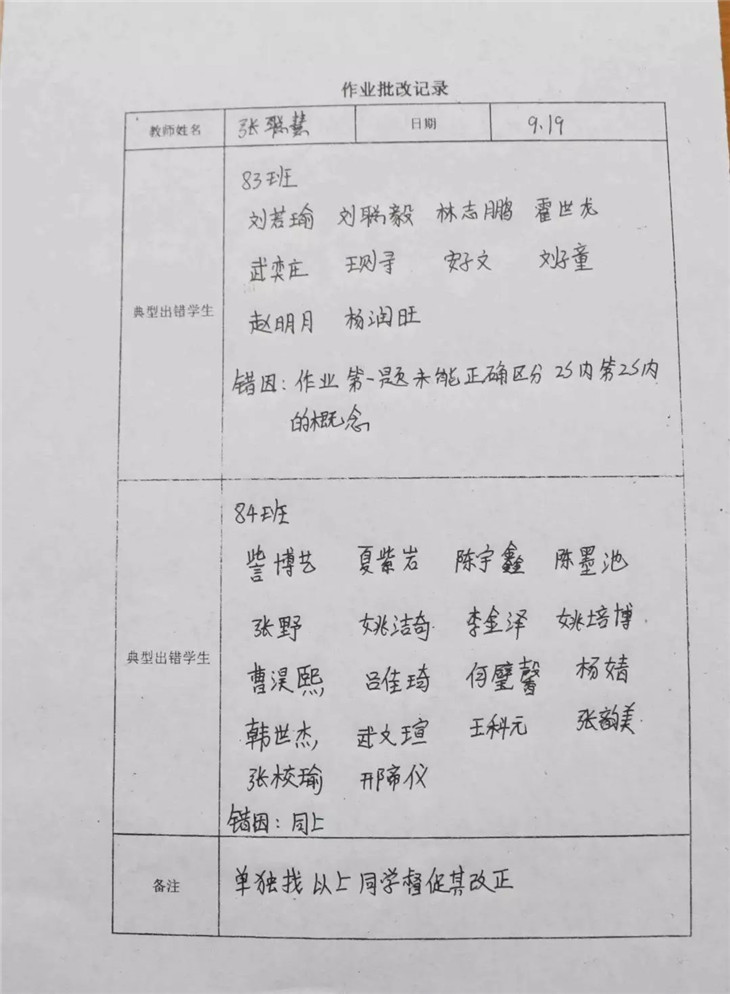 作业批改记录
教师姓名 张聪慧 日期 9.19
83班
刘若瑜 刘聪毅 林志鹏 霍世龙
武奕庄 王则寻 安子文 刘子童
典型出错学生
赵明月 杨润旺
错因：作业第一题未能正确区分 2S内第2S内
的概念
84班
訾博艺 夏紫岩 陈宇鑫 陈墨池
张野 姚洁奇 李金泽 姚培博
典型出错学生
曹淏熙 吕佳琦 何璧馨 杨婧
韩世杰 武文瑄 王科元 张韵美
张校瑜 邢帝仪
错因：同上
备注 单独找以上同学督促其改正